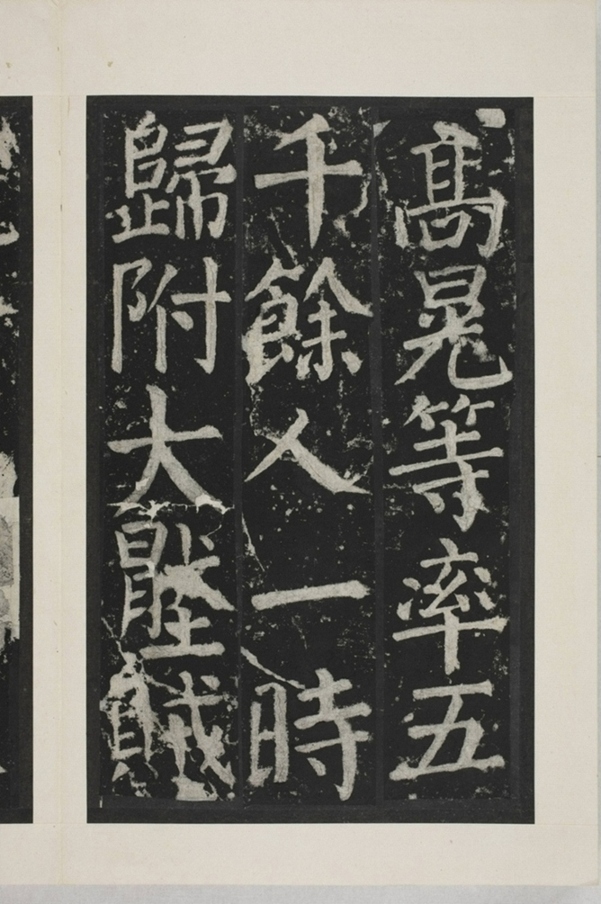 高晃等率五
千餘人一時
歸附大壓賊